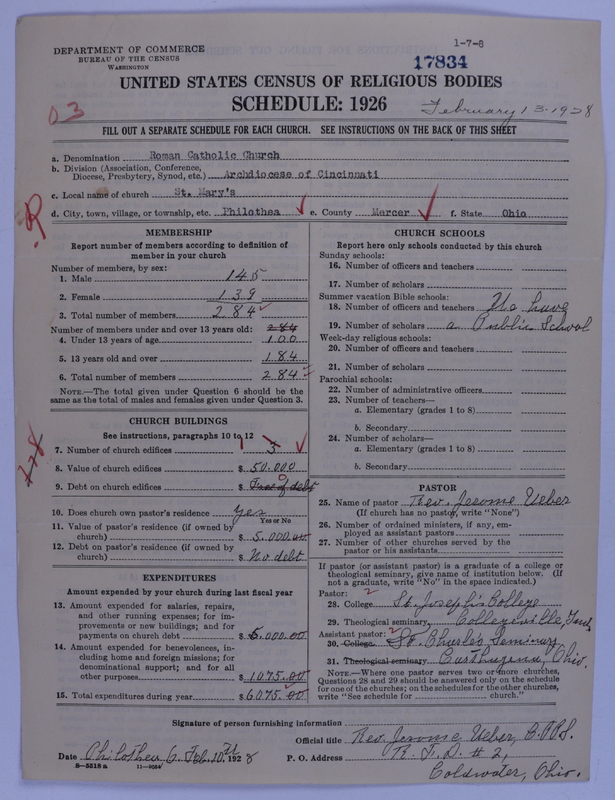 DEPARTMENT OF COMMERCE
BUREAU OF THE CENSUS
WASHINGTON
1-7-8
17834
UNITED STATES CENSUS OF RELIGIOUS BODIES
SCHEDULE: 1926
03
February 13-1928
FILL OUT A SEPARATE SCHEDULE FOR EACH CHURCH. SEE INSTRUCTIONS ON THE BACK OF THIS SHEET
a. Denomination Roman Catholic Church
b. Division (Association, Conference, Diocese, Presbytery, Synod, etc.) Archdiocese of Cincinnati
c. Local name of church St. Mary's
d. City, town, village, or township, etc. Philothea e. County Mercer f. State Ohio
R
MEMBERSHIP
Report number of members according to definition of
member in your church
Number of members, by sex:
1. Male 145
2. Female 139
3. Total number of members 284
Number of members under and over 13 years old: 284
4. Under 13 years of age 100
5. 13 years old and over 184
6. Total number of members 284
NOTE.—The total given under Question 6 should be the
same as the total of males and females given under Question 3.
CHURCH BUILDINGS
See instructions, paragraphs 10 to 12
7. Number of church edifices 1 5
8. Value of church edifices $ 50.000
9. Debt on church edifices $ Free of debt 0
10. Does church own pastor's residence? Yes
Yes or No
11. Value of pastor's residence (if owned by
church) $ 5.000.00
12. Debt on pastor's residence (if owned by
church) $ No debt
EXPENDITURES
Amount expended by your church during last fiscal year
13. Amount expended for salaries, repairs,
and other running expenses; for im-
provements or new buildings; and for
payments on church debt $ 5.000.00
14. Amount expended for benevolences, in-
cluding home and foreign missions; for
denominational support; and for all
other purposes $ 1075.00
15. Total expenditures during year $ 6075.00
CHURCH SCHOOLS
Report here only schools conducted by this church
Sunday schools:
16. Number of officers and teachers
17. Number of scholars
Summer vacation Bible schools:
18. Number of officers and teachers We have
19. Number of scholars a Public School
Week-day religious schools:
20. Number of officers and teachers
21. Number of scholars
Parochial schools:
22. Number of administrative officers
23. Number of teachers—
a. Elementary (grades 1 to 8)
b. Secondary
24. Number of scholars—
a. Elementary (grades 1 to 8)
b. Secondary
PASTOR
25. Name of pastor Rev. Jerome Ueber
(If church has no pastor, write "None")
26. Number of ordained ministers, if any, em-
ployed as assistant pastors
27. Number of other churches served by the
pastor or his assistants
If pastor (or assistant pastor) is a graduate of a college or
theological seminary, give name of institution below. (If
not a graduate, write "No" in the space indicated.)
Pastor: 2
28. College St. Joseph's College
29. Theological seminary Collegeville, Ind.
Assistant pastor: 2
30. College St. Charles Seminary
31. Theological seminary Carthagena, Ohio.
NOTE.—Where one pastor serves two or more churches,
Questions 28 and 29 should be answered only on the schedule
for one of the churches; on the schedules for the other churches,
write "See schedule for church."
Signature of person furnishing information
Official title Rev. Jerome Ueber, C.PP.S.
Date Philothea O. Feb. 10. 1928
P. O. Address R. F. D. # 2,
Coldwater, Ohio.
8-5518a 11-9084